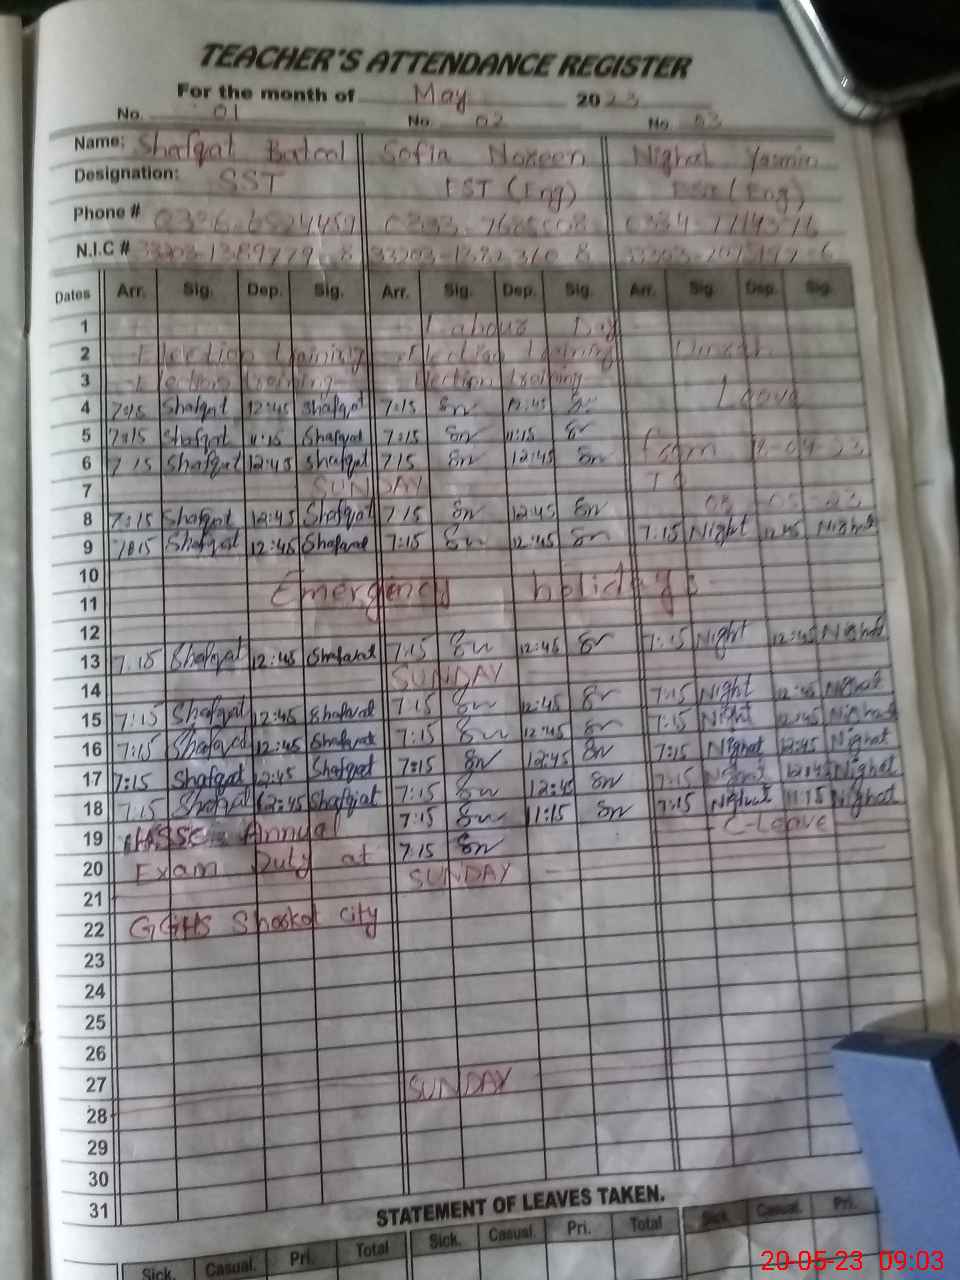 TEACHER'S ATTENDANCE REGISTER
For the month of May 2023
No. 01 No. 02 No. 03
Name: Shafqat Batool Sofia Noreen Nighat Yasmin
Designation: SST EST (Eng) (Eng)
Phone #
N.I.C #
Dates Arr. Sig. Dep. Sig. Arr. Sig. Dep. Sig. Arr. Sig. Dep. Sig.
1 Labour Day
2 Election training Election training
3 Election training Election training
4 7:15 Shafqat 12:45 Shafqat 7:15 Sn 12:45 Sn Leave
5 7:15 Shafqat 11:15 Shafqat 7:15 Sn 11:15 Sn
6 7:15 Shafqat 12:45 Shafqat 7:15 Sn 12:45 Sn From
7 SUNDAY To
8 7:15 Shafqat 12:45 Shafqat 7:15 Sn 12:45 Sn 08-05-23
9 7:15 Shafqat 12:45 Shafqat 7:15 Sn 12:45 Sn 7:15 Night 12:45 Nighat
10
11 Emergency holidays
12
13 7:15 Shafqat 12:45 Shafqat 7:15 Sn 12:45 Sn 7:15 Night 12:45 Nighat
14 SUNDAY
15 7:15 Shafqat 12:45 Shafqat 7:15 Sn 12:45 Sn 7:15 Night 12:45 Nighat
16 7:15 Shafqat 12:45 Shafqat 7:15 Sn 12:45 Sn 7:15 Night 12:45 Nighat
17 7:15 Shafqat 12:45 Shafqat 7:15 Sn 12:45 Sn 7:15 Nighat 12:45 Nighat
18 7:15 Shafqat 12:45 Shafqat 7:15 Sn 12:45 Sn 7:15 Nighat 12:45 Nighat
19 Annual 7:15 Sn 11:15 Sn 7:15 Nighat 11:15 Nighat
20 Exam Duty at 7:15 Sn C-Leave
21 SUNDAY
22 GGHS Shorkot city
23
24
25
26
27
28 SUNDAY
29
30
31
STATEMENT OF LEAVES TAKEN.
Sick. Casual. Pri. Total Sick. Casual. Pri. Total Sick Casual. Pri.
20-05-23 09:03